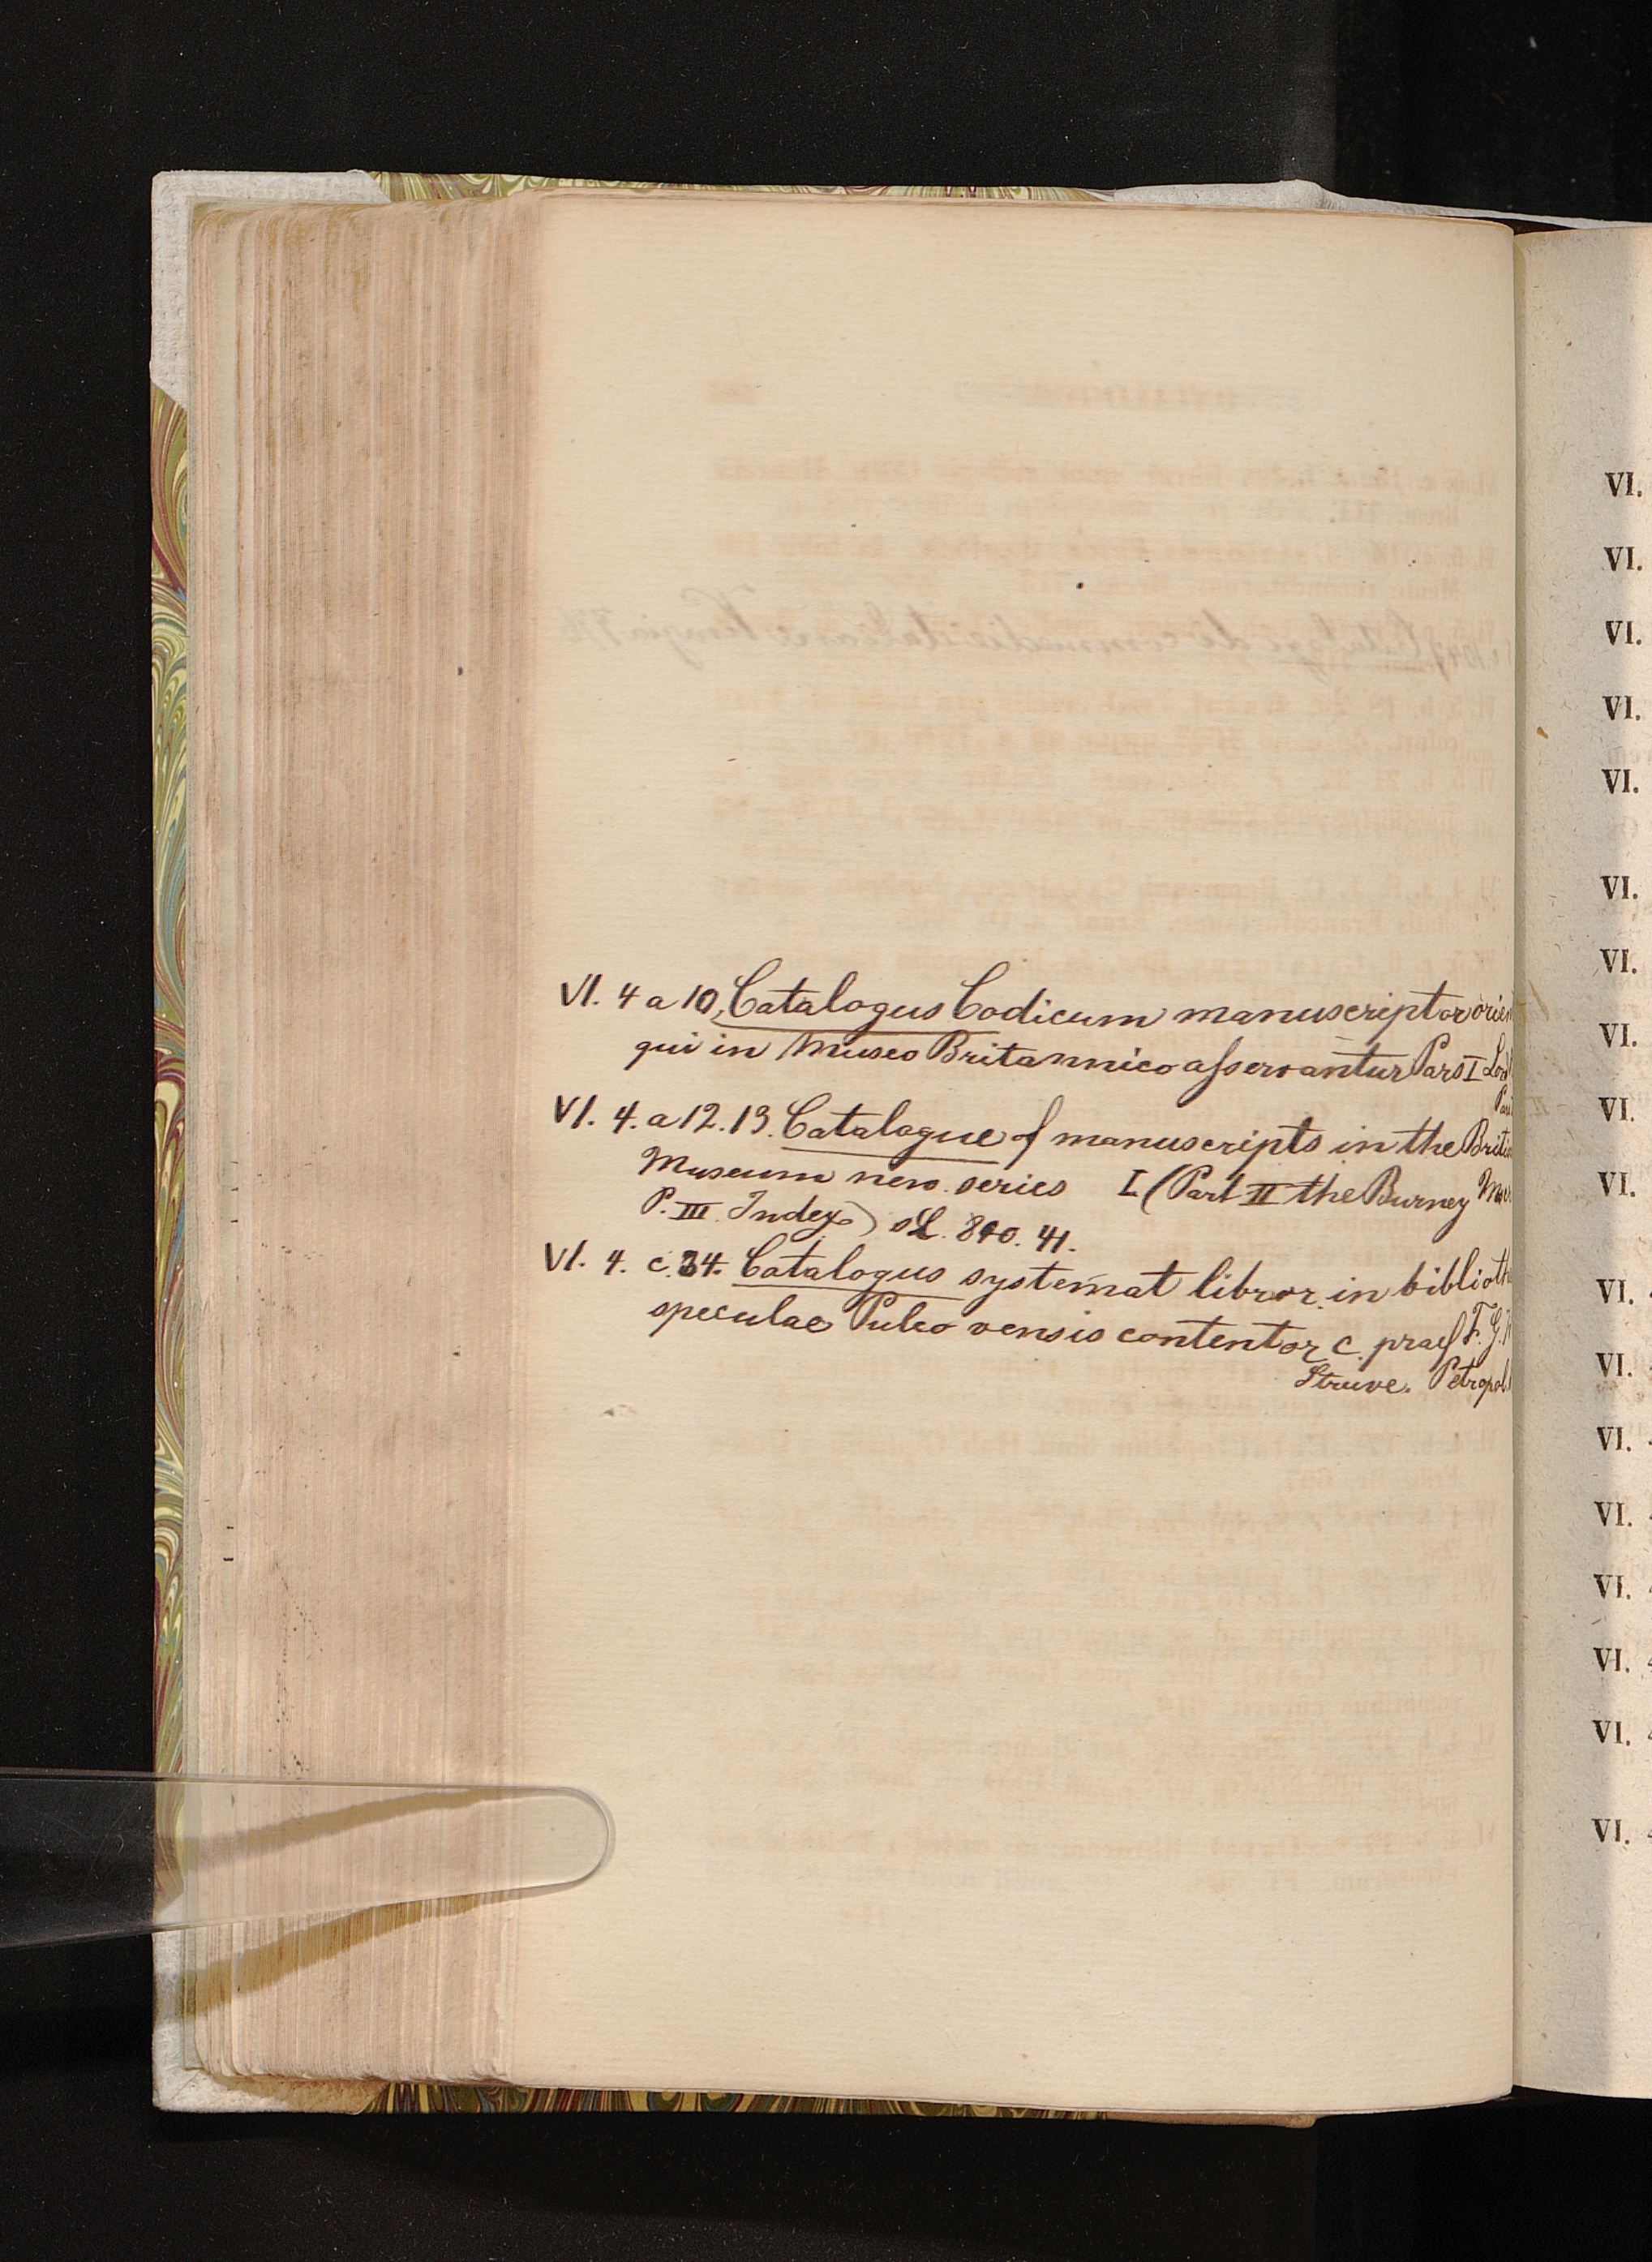 VI. 4 a 10, Catalogus Codicum manuscriptor orien
qui in Museo Britannico asservantur Pars I Lond
Part
VI. 4. a 12. 13. Catalogue of manuscripts in the Britis
Museum new. series I (Part II the Burney
P. III. Index) L. 840. 41.
VI. 4. c. 34. Catalogus systemat libror. in biblioth
speculae Pulcovensis contentor c. praef F. G.
Struve. Petropol
VI.
VI.
VI.
VI.
VI.
VI.
VI.
VI.
VI.
VI.
VI.
VI.
VI.
VI.
VI.
VI.
VI.
VI.